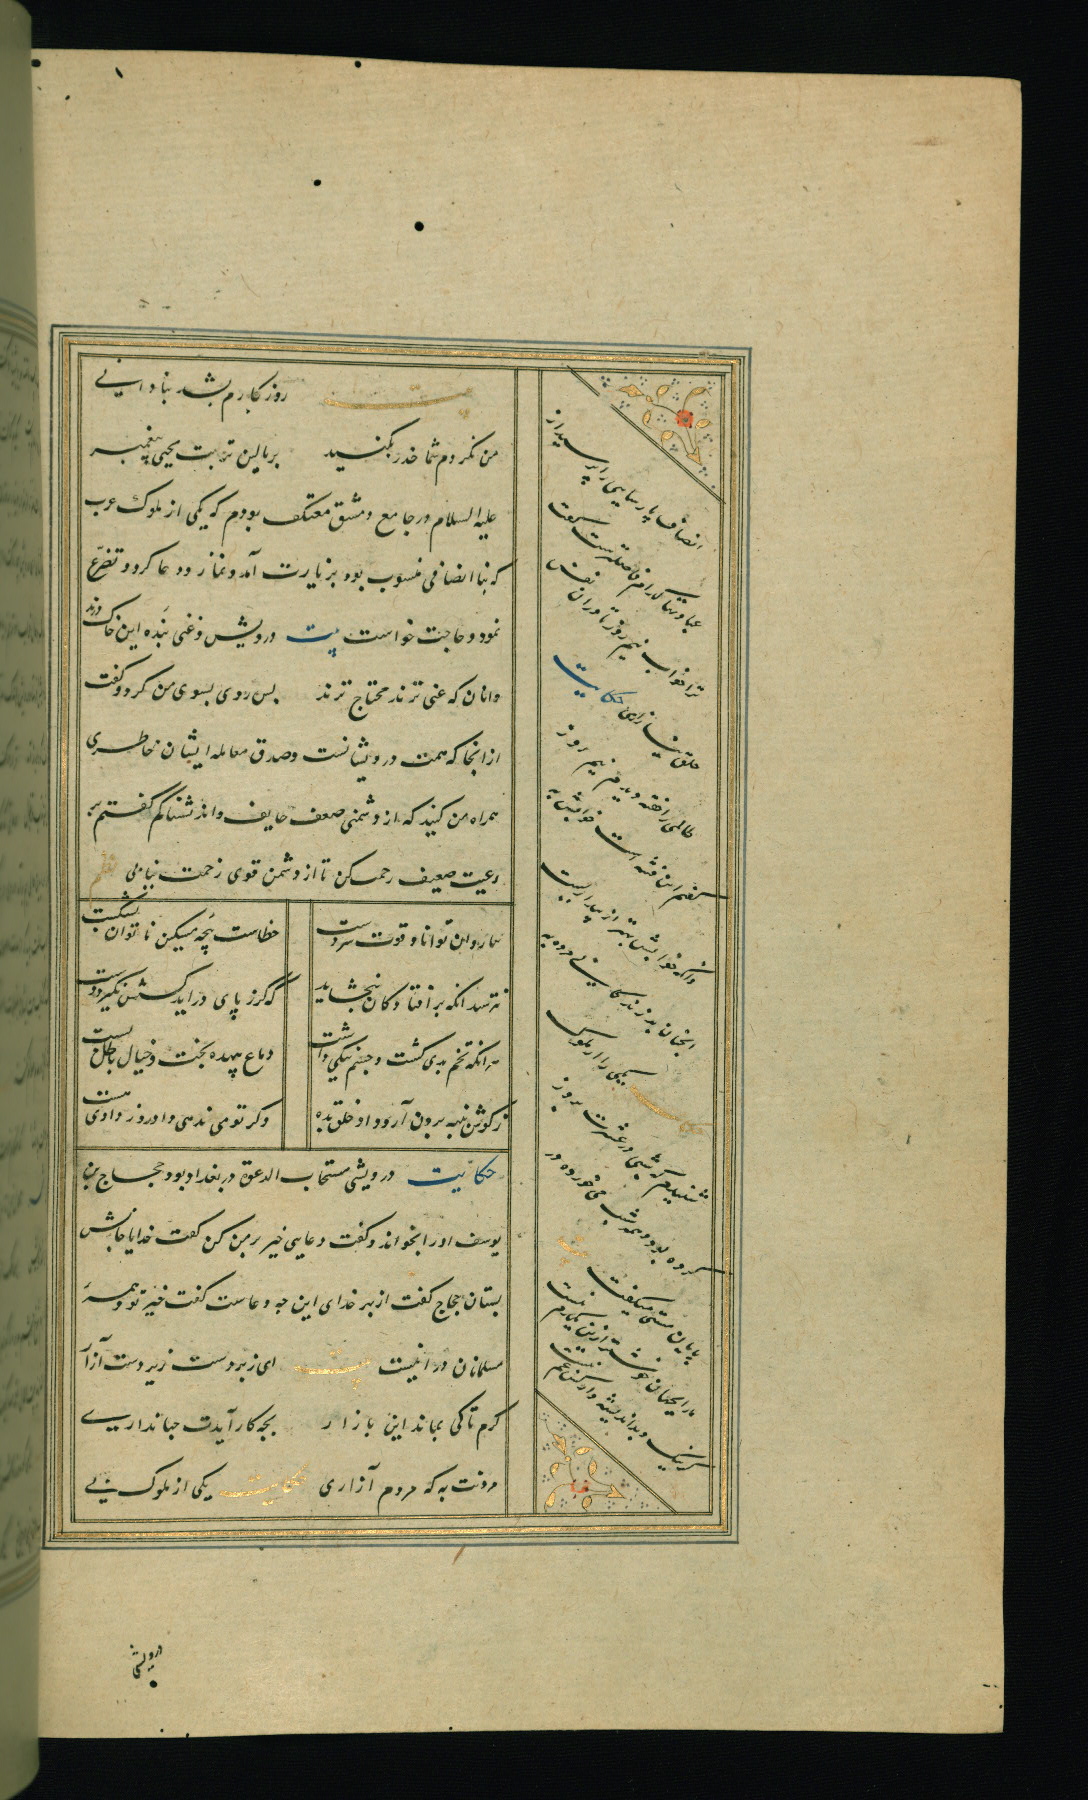 بیت روزکارم بشد بنادانی
من نکردم شما حذر بکنید بر بالین تربت یحیی پیغمبر
علیه السلام در جامع دمشق معتکف بودم که یکی از ملوک عرب
که بنا انصافی منسوب بود بزیارت آمد و نماز و دعا کرد و تضرع
نمود و حاجت خواست بیت درویش و غنی بنده این خاک درند
وانان که غنی ترند محتاج ترند پس روی بسوی من کرد و کفت
از انجا که همت درویشانست و صدق معامله ایشان خاطری
همراه من کنید که از دشمنی صعب خایف و اندیشناکم کفتم بر
رعیت ضعیف رحمت کن تا از دشمن قوی زحمت نیابی نظم
ببازوان توانا و قوت سردست خطاست پنجه مسکین ناتوان بشکست
نترسد انکه بر افتادکان نبخشاید که کرز پای دراید کسش نکیرد دست
هرانکه تخم بدی کشت و چشم نیکی داشت دماغ بیهده پخت و خیال باطل بست
زکوش پنبه برون آر و داد خلق بده وکر تو می ندهی داد روز دادی هست
حکایت درویشی مستجاب الدعوة در بغداد بود حجاج بن
یوسف او را بخواند و کفت دعایی خیر بر من کن کفت خدایا جانش
بستان حجاج کفت از بهر خدای این چه دعاست کفت خیر تو و همه
مسلمانان در اینست بیت ای زبردست زیردست آزار
کرم تا کی بماند این بازار بچه کار آیدت جهانداریے
مردنت به که مردم آزاری حکایت یکی از ملوک بی
انصاف پارسایی را پرسید از
عبادتها کدام فاضلترست کفت
ترا خواب نیم روز تا دران نفس
خلق نیازاری حکایت
ظالمی را خفته دیدم نیم روز
کفتم این فتنه است خوابش به
وانکه خوابش بهتر از بیداریست
انچنان بد زندکانی مرده به
حکایت یکی را از ملوک
شنیدم که شبی در عشرت بروز
کرده بود و همه شب می خورده در
پایان مستی میکفت بیت
ما را بجهان خوشتر ازین یکدم نیست
کز نیک و بد اندیشه و از کس غم نیست
درویشی